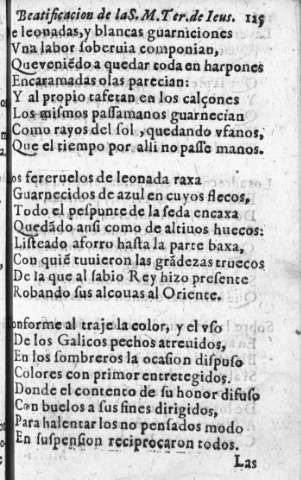 Beatificacion de la S. M. Ter. de Ieus. 125
e leonadas, y blancas guarniciones
Vna labor soberuia componian,
Que veniẽdo a quedar toda en harpones
Encaramadas olas parecian:
Y al propio tafetan en los calçones
Los mismos passamanos guarnecian
Como rayos del sol, quedando vfanos,
Que el tiempo por alli no passe manos.
os fereruelos de leonada raxa
Guarnecidos de azul en cuyos flecos,
Todo el pespunte de la seda encaxa
Quedãdo ansi como de altiuos huecos:
Listeado aforro hasta la parte baxa,
Con quiẽ tuuieron las grãdezas truecos
De la que al sabio Rey hizo presente
Robando sus alcouas al Oriente.
onforme al traje la color, y el vso
De los Galicos pechos atreuidos,
En los sombreros la ocasion dispuso
Colores con primor entretegidos.
Donde el contento de su honor difuso
Con buelos a sus fines dirigidos,
Para halentar los no pensados modo
En suspension reciprocaron todos.
Las